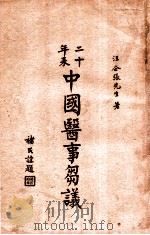 汪企張先生著
二十
年來
中國醫事芻議
褚民誼題